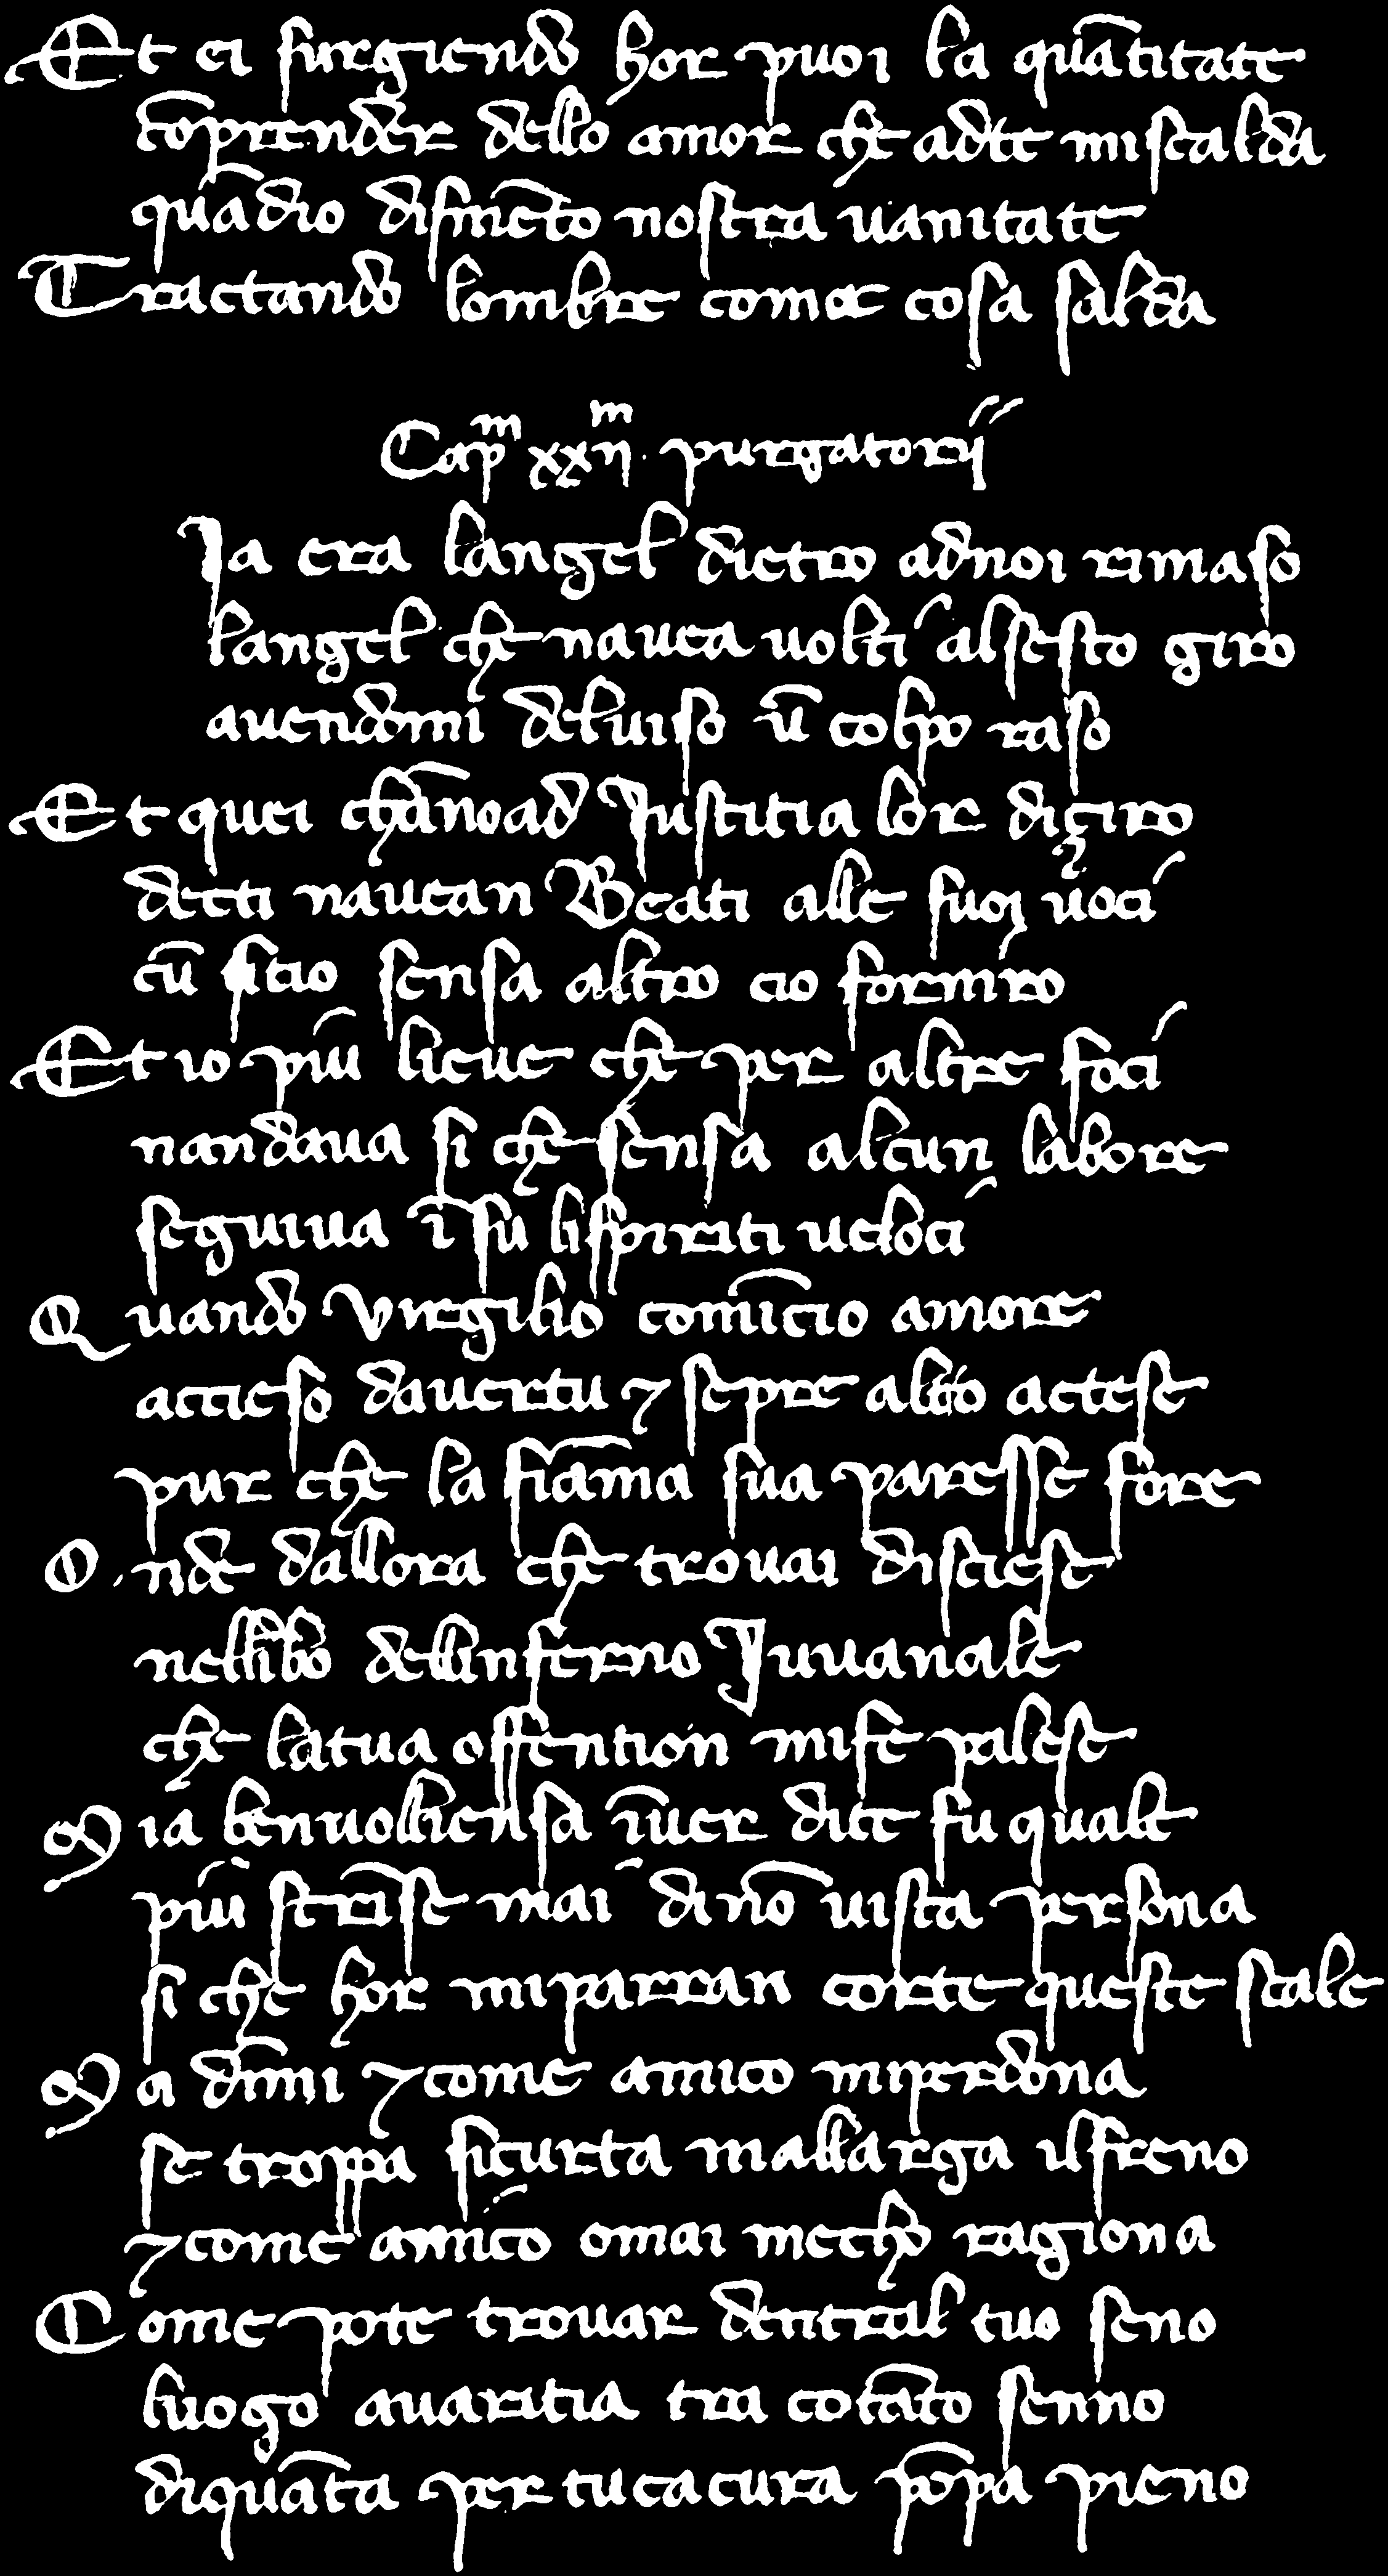 Et ei surgiendo hor puoi la quãtitate
cõprender dello amor che adte miscalda
quãdio dismẽto nostra uanitate
Tractando lombre come cosa salda
Capᵐ xxijᵐ purgatorij
Ia era langel dietro adnoi rimaso
langel che nauea uolti alsesto giro
auendomi deluiso ũ colpo raso
Et quei chãno ad Iustitia lor disiro
decti nauean Beati alle suoi uoci
cũ sitio sensa altro cio forniro
Et io piu lieue che per altre foci
nandaua si che sensa alcun labore
seguiua ĩ su li spiriti ueloci
Quando Virgilio comĩcio amore
accieso dauertu ⁊ sepre altro actese
pur che la fiãma sua paresse fore
Onde dallora che trouai disciese
nellĩbo dellinferno Iuuanale
che latua affention mife palese
Mia benuolliensa ĩuer dite fu quale
piu strĩse mai dinõ uista persona
si che hor miparran corte queste scale
Ma dĩmi ⁊ come amico miperdona
se troppa sicurta mallarga ilfreno
⁊ come amico omai mecho ragiona
Come pote trouar dentral tuo seno
luogo auaritia tra cotãto senno
diquãta per tuca cura põpa pieno